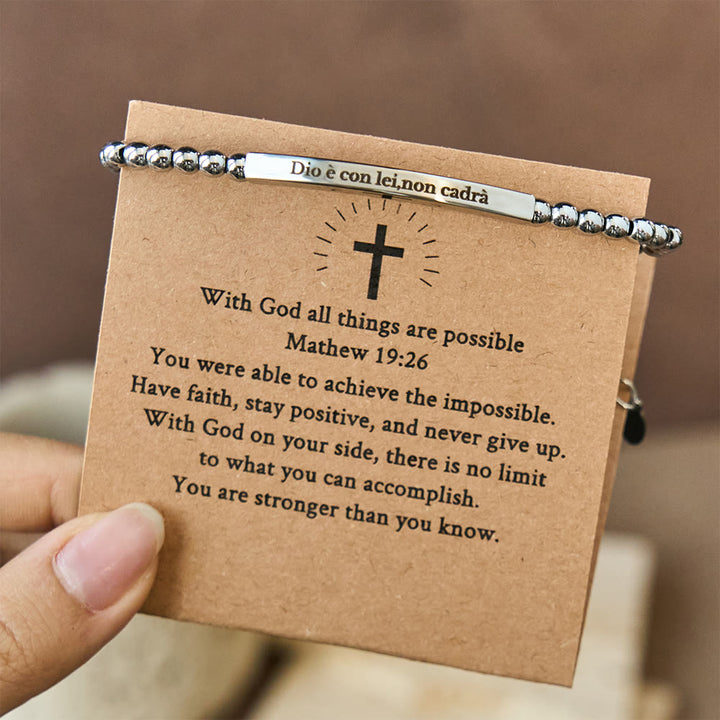 Dio è con lei,non cadrà
With God all things are possible
Mathew 19:26
You were able to achieve the impossible.
Have faith, stay positive, and never give up.
With God on your side, there is no limit
to what you can accomplish.
You are stronger than you know.